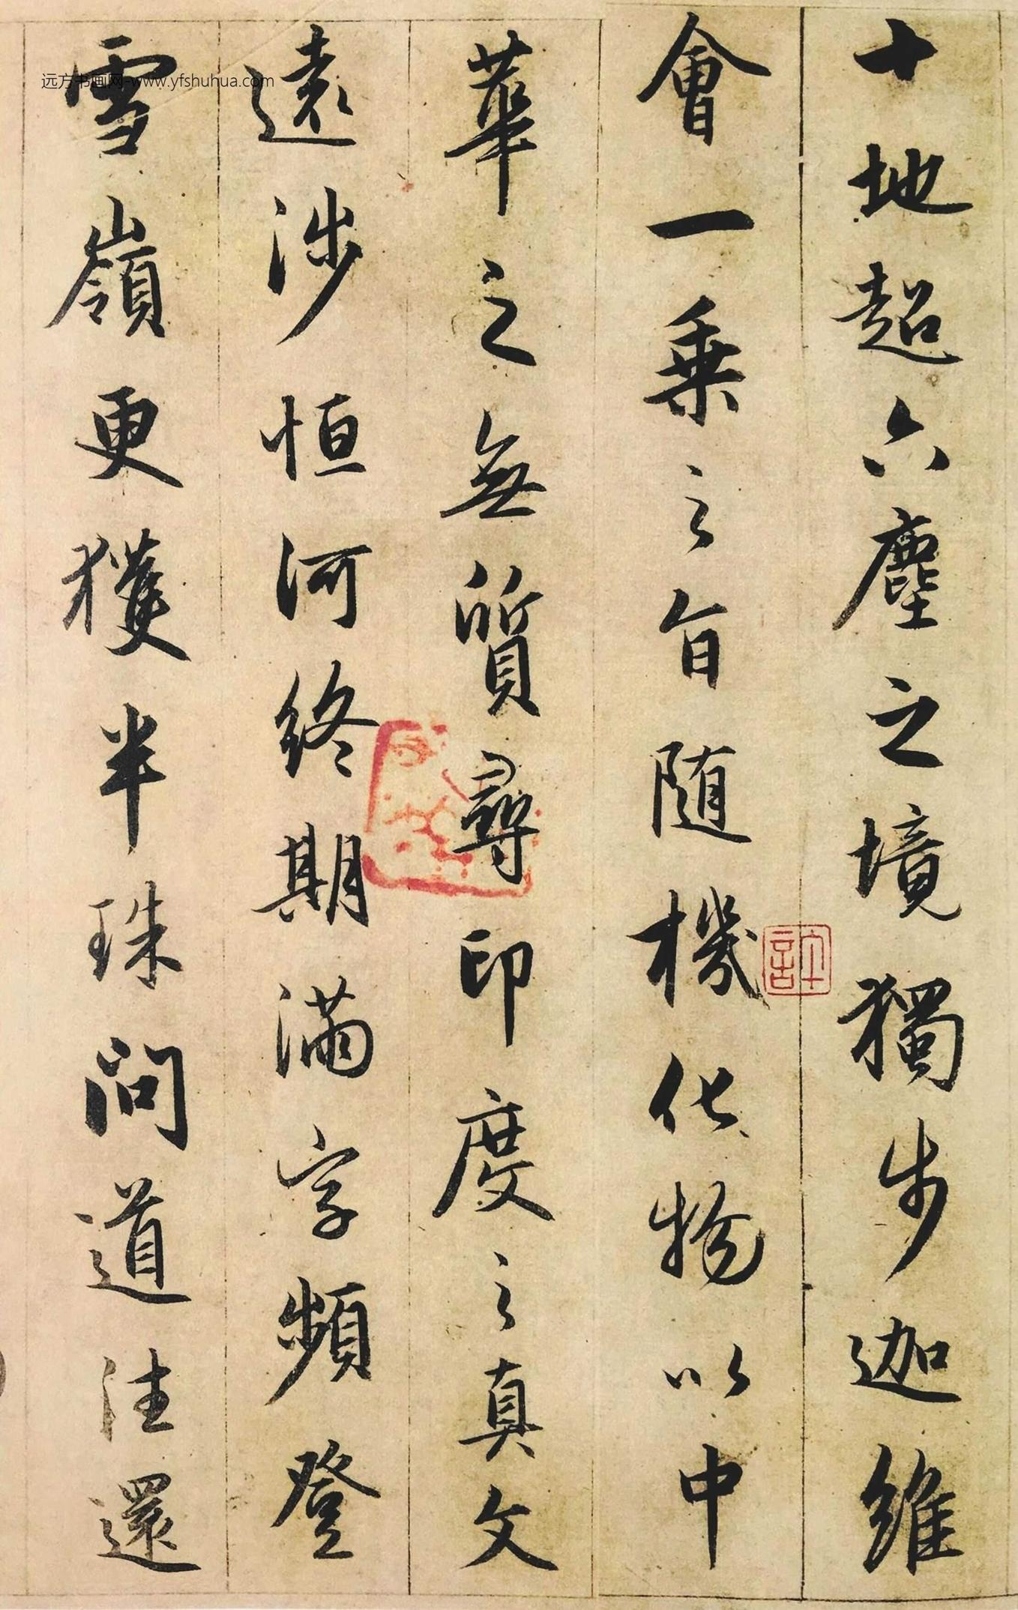 十地超六塵之境獨步迦維
會一乗之旨随機化物以中
華之無質尋印度之真文
遠涉恒河終期滿字頻登
雪嶺更獲半珠問道往還
远方书画网-www.yfshuhua.com